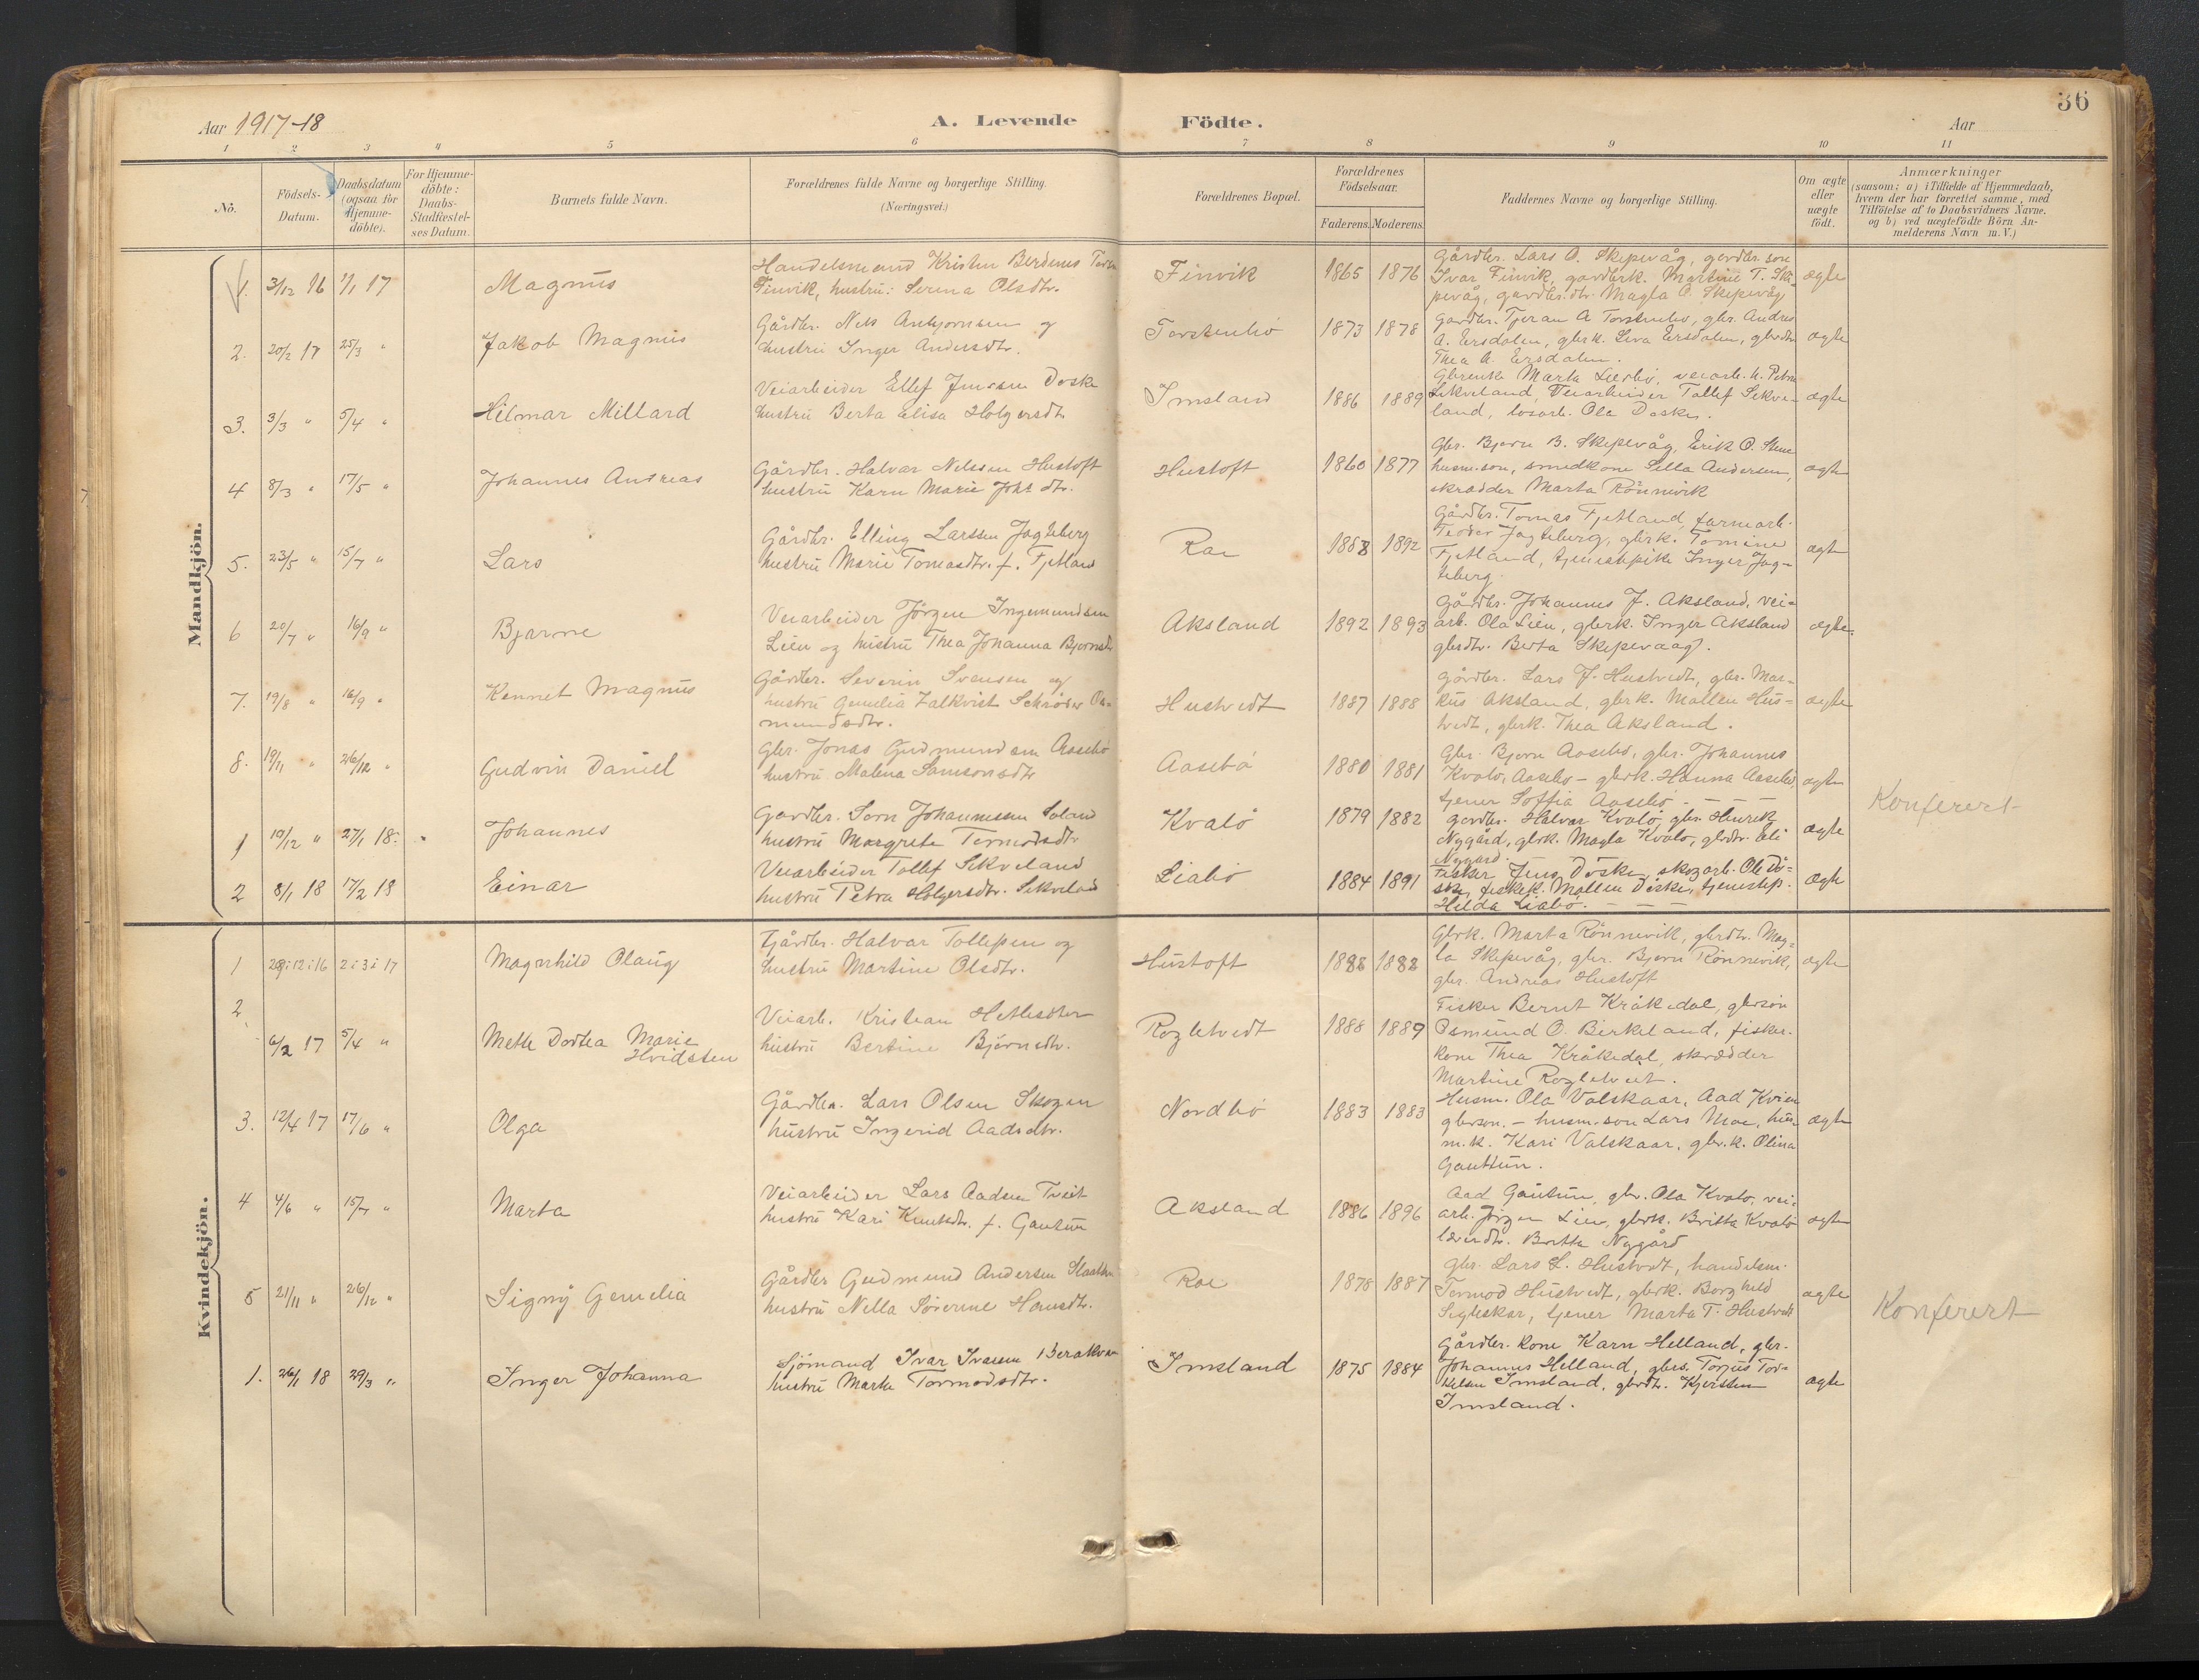 Aar 1917-18
A. Levende Födte.
Aar
36
1 2 3 4 5 6 7 8 9 10 11
No.
Födsels-
Datum.
Daabsdatum
(ogsaa for
Hjemme-
döbte).
For Hjemme-
döbte:
Daabs-
Stadfæstel-
ses Datum.
Barnets fulde Navn.
Forældrenes fulde Navne og borgerlige Stilling.
(Næringsvei.)
Forældrenes Bopæl.
Forældrenes
Födselsaar.
Faderens. Moderens.
Faddernes Navne og borgerlige Stilling.
Om ægte
eller
uægte
födt.
Anmærkninger
(saasom: a) i Tilfælde af Hjemmedaab,
hvem der har forrettet samme, med
Tilföielse af to Daabsvidners Navne.
og b) ved uægtefödte Börn An-
melderens Navn m. V.)
Mandkjön.
1. 3/12 16 1/1 17 Magnus
Handelsmand Kristen Berdenes
Finvik, hustru: Serina Olsdtr.
Finvik 1865 1876
Gårdbr. Lars O. Skipevåg, gardbr. son
Ivar Finvik, gardbrk. Martine T. Ski-
pevåg, gardbr.dtr. Magla O. Skipevåg
ægte
2. 20/2 17 25/3 " Jakob Magnus
Gårdbr. Nels Anbjornsen og
hustru Inger Andersdtr.
Torstenbö 1873 1878
Gardbr. Tjeran A Torstenbö, gbr. Andres
A. Ersdalen, gbrk. Siva Ersdalen, gbrdtr
Thea A. Ersdalen.
ægte
3. 3/3 " 5/4 " Hilmar Millard
Veiarbeider Ellef Jensen Doske
hustru Berta Elisa Holgersdtr
Imsland 1886 1889
Gbrenke Marta Lierbö, veiarb. k. Petra
Sekveland, Veiarbeider Tollef Sekve-
land, losarb. Ole Doske.
ægte
4 8/3 " 17/5 " Johannes Andreas
Gårdbr. Halvar Nelssen Hustoft
hustru Karn Marie Johs dtr.
Hustoft 1860 1877
Gbr. Bjorn B. Skipevåg, Erik O. Stene
husm. son, smedkone Sella Andersen,
skrædder Marta Rönnevik
ægte
5. 23/5 " 15/7 " Lars
Gårdbr. Elling Larssen Jagteberg
hustru Marie Tomasdtr. f. Fjetland
Roe 1888 1892
Gårdbr. Tomas Fjetland, farmarb.
Teodor Jagteberg, gbrk. Tomine
Fjetland, tjenestpike Inger Jag-
teberg.
ægte
6 20/7 " 16/9 " Bjarne
Veiarbeider Jörgen Ingemundsen
Lien og hustru Thea Johanna Bjornsdtr
Aksland 1892 1893
Gårdbr. Johannes J. Aksland, vei-
arb. Ola Lien, gbrk. Inger Aksland
gbrdtr. Berta Skipevaag.
ægte.
7. 19/8 " 16/9 " Kennet Magnus
Gårdbr. Severin Svensen og
hustru Gemelia Falkvist Schröder Os-
mundsdtr.
Hustvedt 1887 1888
Gårdbr. Lars J. Hustvedt, gbr. Mar-
kus Aksland, gbrk. Mallen Hus-
tvedt, gbrk. Thea Aksland.
ægte
8. 19/11 " 26/12 " Gudvin Daniel
Gbr. Jonas Gudmundsen Aasebö
hustru Malena Samsonsdtr
Aasebö 1880 1881
Gbr. Bjorn Aasebö, gbr. Johannes
Kvalo, Aasebo – gbrk. Hanna Aasebö,
tjener Soffia Aasebö – – –
ægte
Konferert
1 19/12 " 27/1 18. " Johannes
Gardbr. Sorn Johannessen Soland
hustru Margrete Tormodsdtr
Kvalö 1879 1882
Gardbr. Halvar Kvalö, gbr. Henrik
Nygård, gbrk. Magla Kvalö, gbrdtr. Eli
Nygård.
ægte
2 8/1 18 17/2 18 Einar
Veiarbeider Tollef Sekveland
hustru Petra Holgersdtr. Sekveland
Liabö 1884 1891
Fisker Jens Döske, skogarb. Ole Dö-
ske, fiskerk. Mallen Döske, tjenestep.
Hilda Liabö. – – –
Ægte
Kvindekjön.
1 29:12:16 2:3:17 Magnhild Olaug
Gårdbr. Halvar Tollefsen og
hustru Martine Olsdtr.
Hustoft 1888 1882
Gbrk. Marta Rönnevik, gbrdtr. Mag-
la Skipevåg, gbr. Bjorn Rönnevik,
gbr. Andreas Hustoft
ægte
2. 6/2 17 5/4 " Mette Dortea Marie
Hvidsten
Veiarb. Kristian
hustru Bertine Björnsdtr.
Rogletvedt 1888 1889
Fisker Bernt Kråkedal, gbrsön
Osmund O. Birkeland, fisker-
kone Thea Kråkedal, skrædder
Martine Rogletveit.
3. 12/4 17 17/6 " Olga
Gårdbr. Lars Olsen Skogen
hustru Ingerid Aadsdtr.
Nordbö 1883 1883
Husm. Ola Valskaar, Aad Kvien
gbrson. – husm. son Lars Moe, hus-
m.k. Kari Valskaar, gbr.k. Olina
Gauttun.
ægte
4 4/6 " 15/7 " Marta
Veiarbeider Lars Aadsen Tveit
hustru Kari Knutsdtr. f. Gautun
Aksland 1886 1896
Aad Gautun, gbr. Ola Kvalo, vei-
arb. Jörgen Lien, gbrk. Britta Kvalö
lærerdtr. Britta Nygård
ægte
5 21/11 " 26/12 " Signy Gemelia
Gårdbr Gudmund Andersen
hustru Nella Sörenne Hansdtr.
Roe 1878 1887
Gbr. Lars L. Hustvedt, handelsm.
Tormod Hustvedt, gbrk. Borghild
Sigleskar, tjener Marta T. Hustvedt
ægte
Konferert
1. 26/1 18 29/3 " Inger Johanna
Sjömand Ivar Ivarsen Berakvam
hustru Marta Tormodsdtr.
Imsland 1875 1884
Gårdbr. kone Karn Helland, gbr.
Johannes Helland, gbrs. Torjus Tor-
kelsen Imsland, gbrdtr. Kjersten
Imsland.
ægte